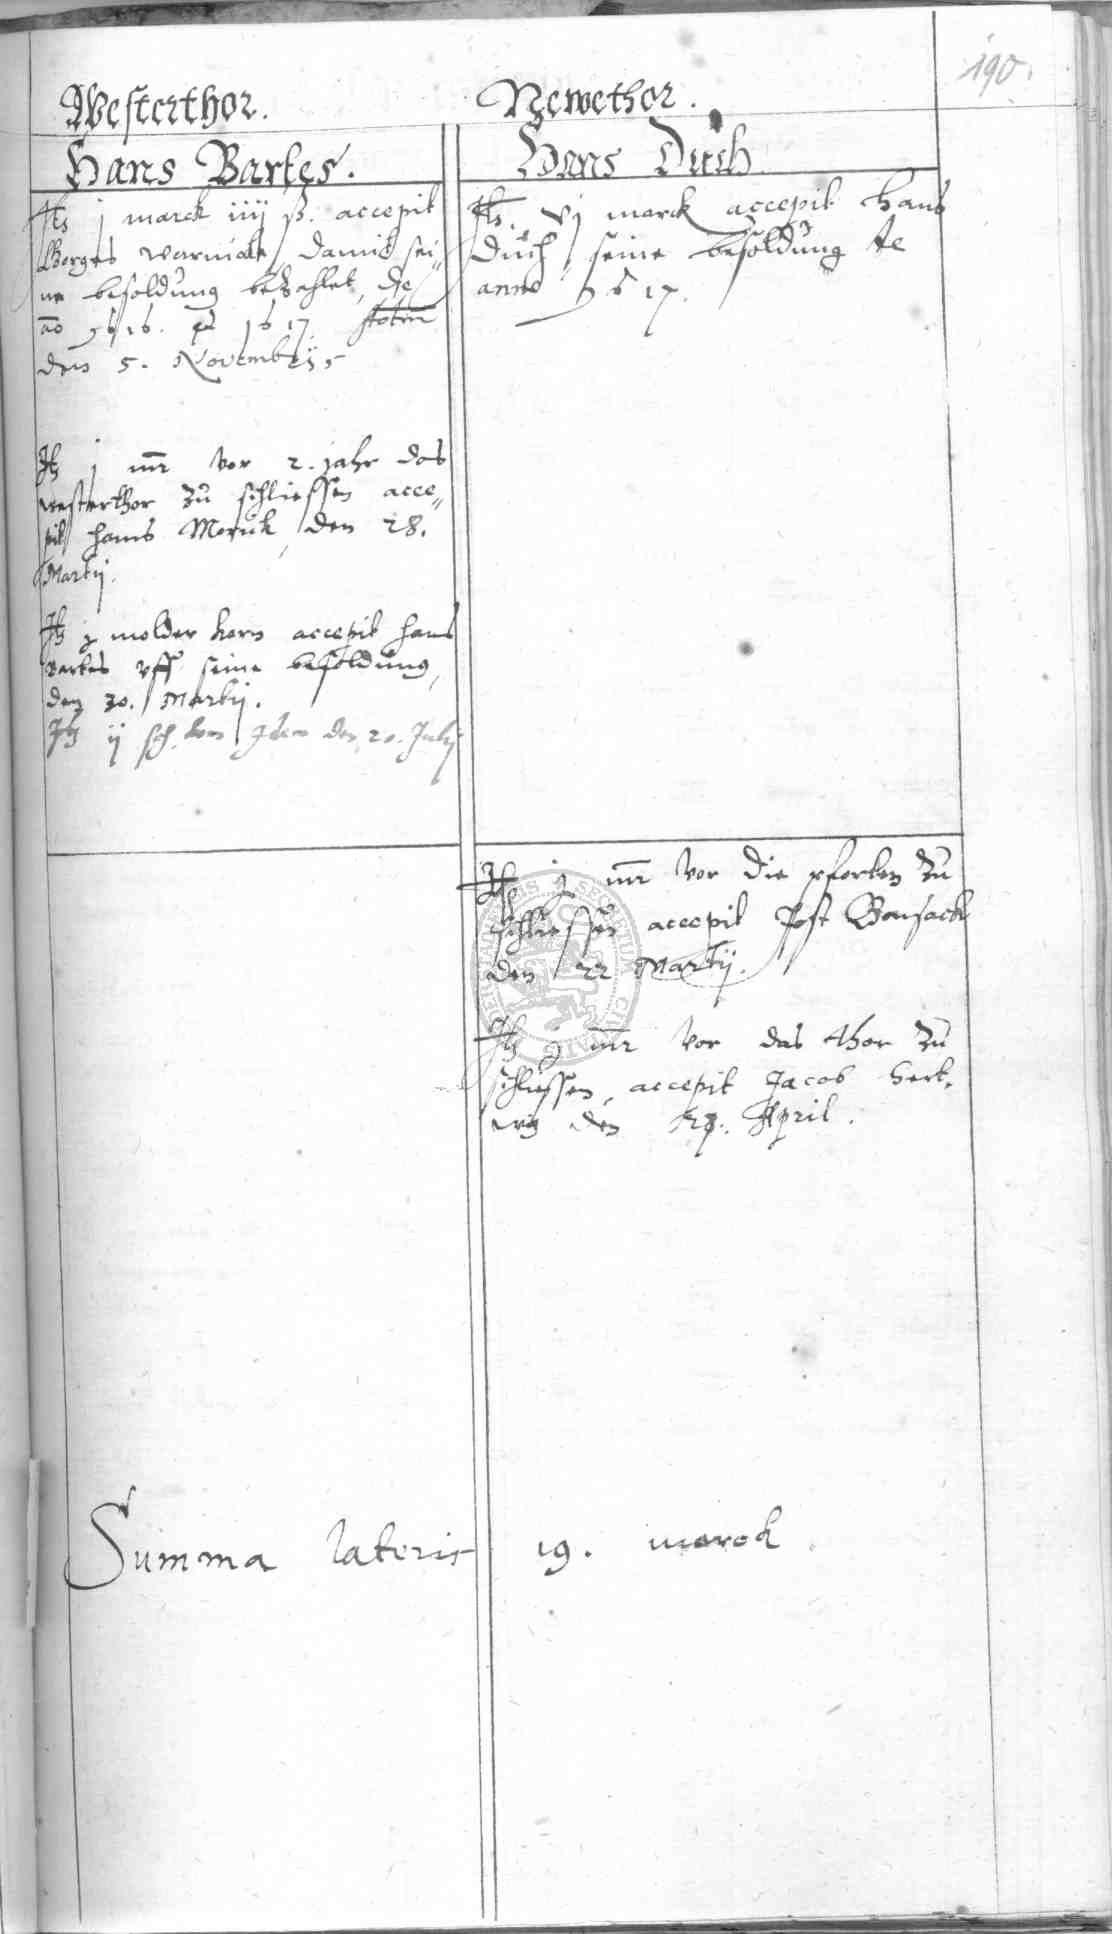 190.
Westerthor.
Hans Bartes.
It j marck iiij ß. accepit
Borges Warmolt, damit sei„
ne besoldung bezahlet, de
ao 1616. et 1617.
den 5. Novembris
It j mr vor 2. jahr das
westerthor zu schliessen acce„
pit hans Moruk, den 28.
Martij.
It j molder korn accepit hans
Bartes uff seine besoldung,
den 30. Martij.
It ij sch. korn Idem den 20. Julij
Newethor.
Hans Duch.
It. vj marck accepit hans
Duch, seine besoldung de
anno 1617.
It j mr vor die pforten zu
schliessen accepit Jost Bonsack
den 22 Martij.
It j mr vor das thor zu
schliessen, accepit Jacob Hert„
wig den April.
Summa lateris 19. marck